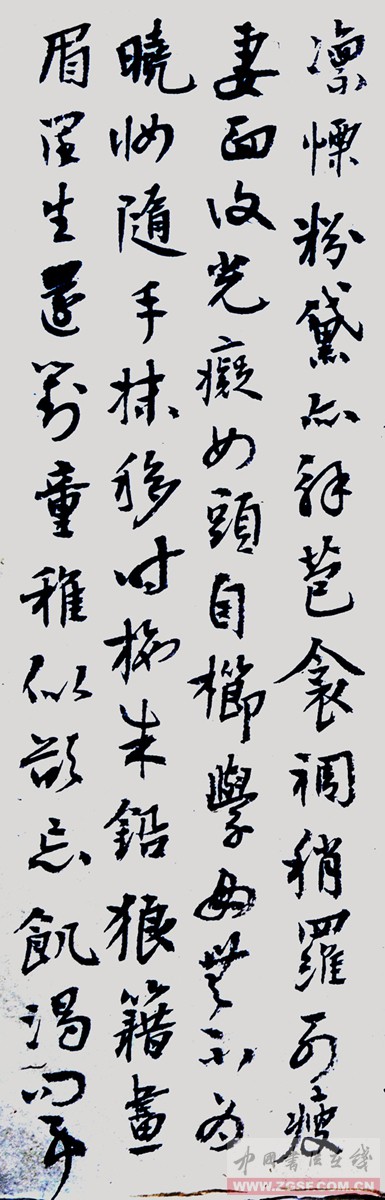 凛慄粉黛亦解苞衾裯稍羅列瘦
妻面復光癡女頭自櫛學母無不為
曉妝隨手抹移時施朱鉛狼籍畫
眉闊生還對童稚似欲忘飢渴問事
中國書法在線
WWW.ZGSF.COM.CN